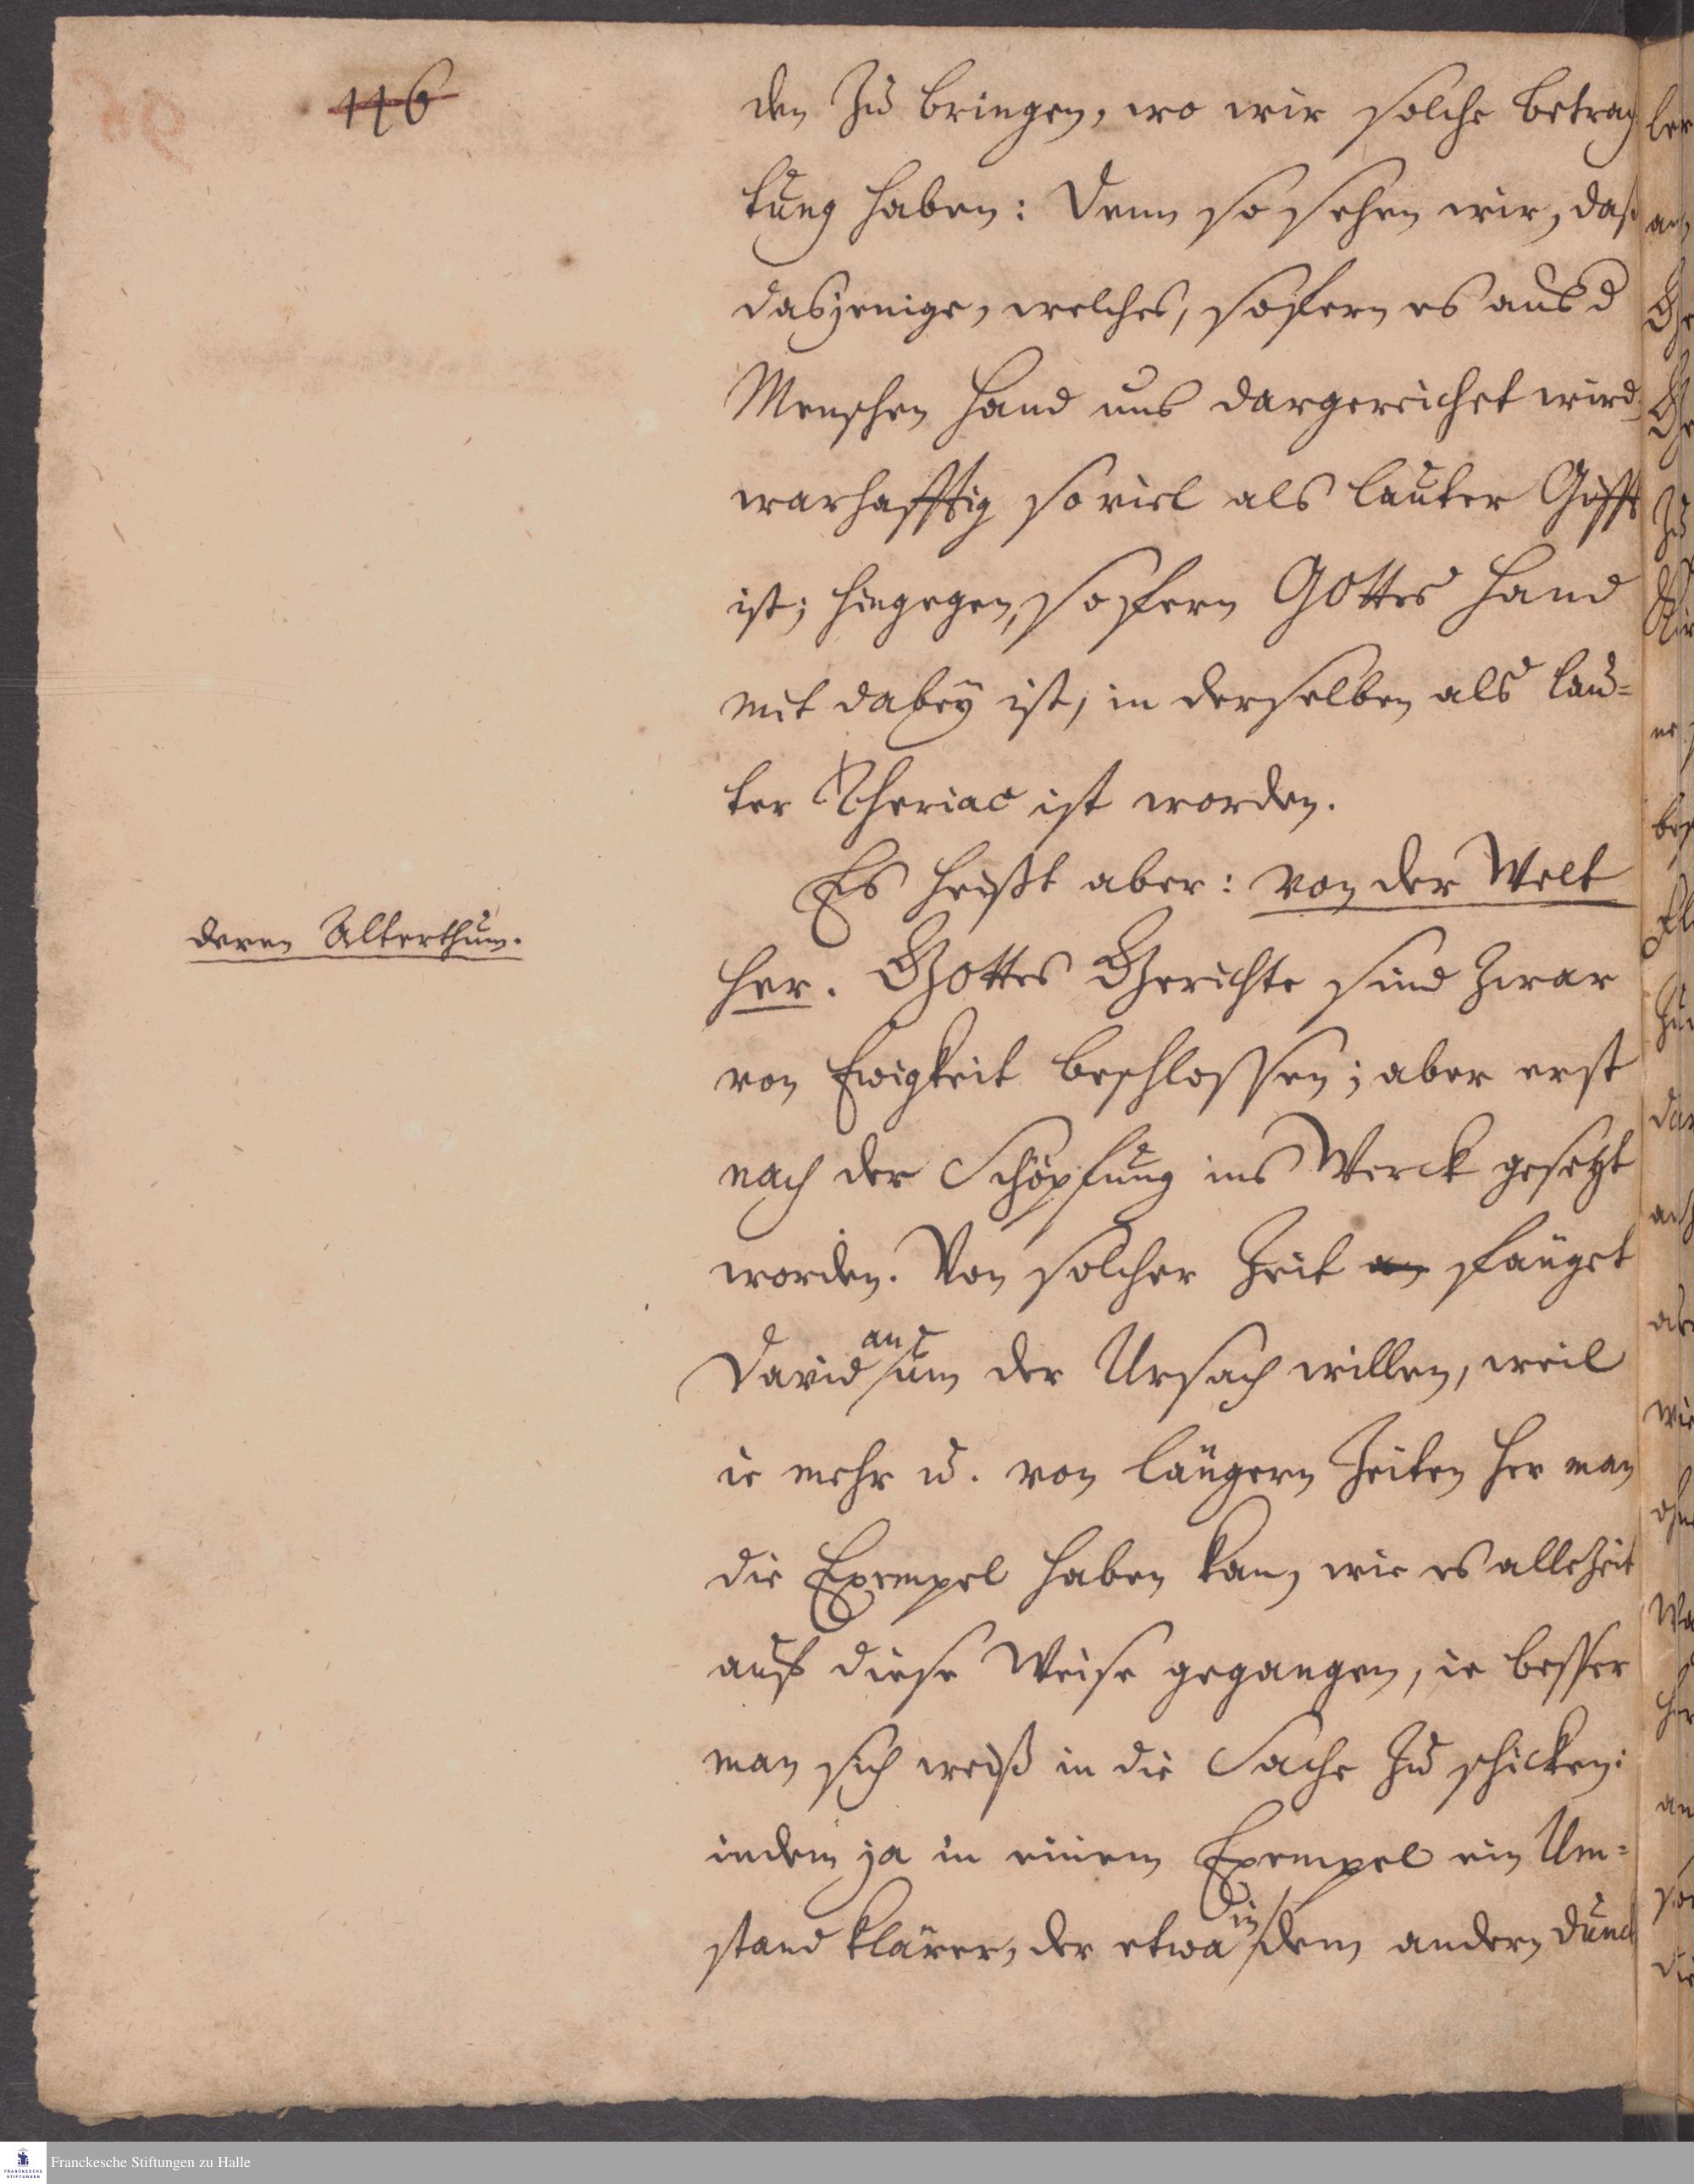 116
den zu bringen, wo wir solche Betrach
tung haben: Denn so sehen wir, daß
dasjenige, welches, sofern es aus d
Menschen Hand uns dargereichet wird,
warhafftig soviel als lauter Gifft
ist; hingegen, sofern GOttes Hand
mit dabey ist, in derselben als lau=
ter Theriac ist worden.
Es heißt aber: von der Welt
deren Alterthum.
her. Gottes Gerichte sind zwar
von Ewigkeit beschlossen; aber erst
nach der Schöpfung ins Werck gesetzt
worden. Von solcher Zeit an fänget
David an um der Ursach willen, weil
ie mehr u. von längern Zeiten her man
die Exempel haben kan, wie es allezeit
auf diese Weise gegangen, ie besser
man sich weiß in die Sache zu schicken:
indem ja in einem Exempel ein Um=
stand klärer, der etwa in dem andern dunck
Franckesche Stiftungen zu Halle